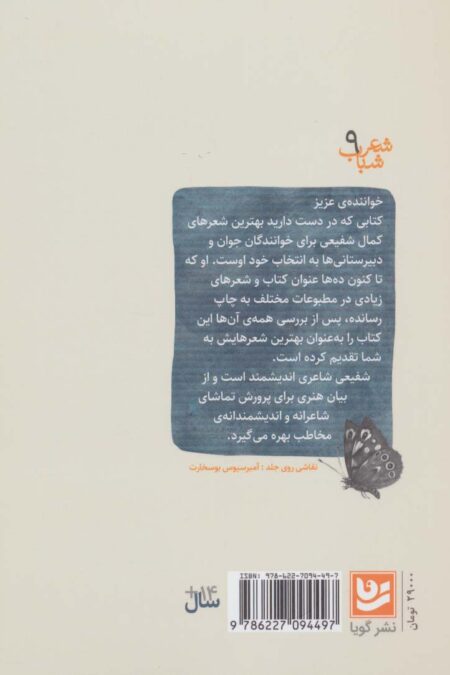 شعر شباب ۹
خواننده‌ی عزیز
کتابی که در دست دارید بهترین شعرهای
کمال شفیعی برای خوانندگان جوان و
دبیرستانی‌ها به انتخاب خود اوست. او که
تا کنون ده‌ها عنوان کتاب و شعرهای
زیادی در مطبوعات مختلف به چاپ
رسانده، پس از بررسی همه‌ی آن‌ها این
کتاب را به‌عنوان بهترین شعرهایش به
شما تقدیم کرده است.
شفیعی شاعری اندیشمند است و از
بیان هنری برای پرورش تماشای
شاعرانه و اندیشمندانه‌ی
مخاطب بهره می‌گیرد.
نقاشی روی جلد : آمبرسیوس بوسخارت
ISBN: 978-622-7094-49-7
9 786227 094497
+۱۴
سال
نشر گویا
۲۹۰۰۰ تومان